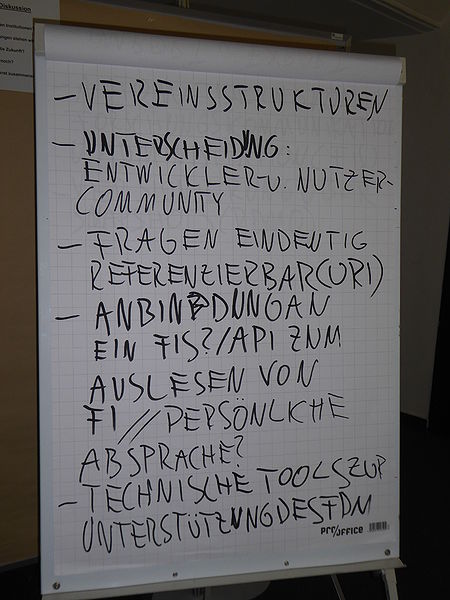 Diskussion
- VEREINSSTRUKTUREN
- UNTERSCHEIDUNG:
ENTWICKLER-U. NUTZER-
COMMUNITY
- FRAGEN EINDEUTIG
REFERENZIERBAR(URI)
- ANBINDUNG AN
EIN FIS?/API ZUM
AUSLESEN VON
FI // PERSÖNLICHE
ABSPRACHE?
- TECHNISCHE TOOLS ZUR
UNTERSTÜTZUNG DES FDM
pro/office